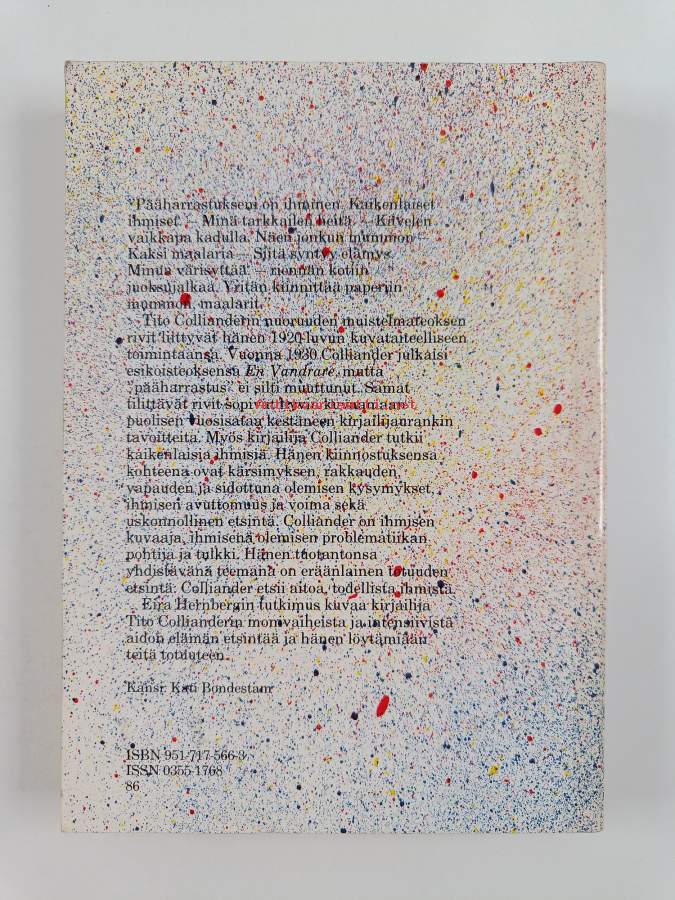 "Pääharrastukseni on ihminen. Kaikenlaiset
ihmiset. – Minä tarkkailen heitä. – Kävelen
vaikkapa kadulla. Näen jonkun mummon –
Kaksi maalaria – Siitä syntyy elämys.
Minua värisyttää – riennän kotiin
juoksujalkaa. Yritän kiinnittää paperiin
mummon, maalarit."
Tito Collianderin nuoruuden muistelmateoksen
rivit liittyvät hänen 1920-luvun kuvataiteelliseen
toimintaansa. Vuonna 1930 Colliander julkaisi
esikoisteoksensa En Vandrare, mutta
"pääharrastus" ei silti muuttunut. Samat
tilittävät rivit sopivat hyvin kuvaamaan
puolisen vuosisataa kestäneen kirjailijanrankin
tavoitteita. Myös kirjailija Colliander tutkii
kaikenlaisia ihmisiä. Hänen kiinnostuksensa
kohteena ovat kärsimyksen, rakkauden,
vapauden ja sidottuna olemisen kysymykset,
ihmisen avuttomuus ja voima sekä
uskonnollinen etsintä. Colliander on ihmisen
kuvaaja, ihmisenä olemisen problematiikan
pohtija ja tulkki. Hänen tuotantonsa
yhdistävänä teemana on eräänlainen totuuden
etsintä: Colliander etsii aitoa, todellista ihmistä.
Eira Hernbergin tutkimus kuvaa kirjailija
Tito Collianderin monivaiheista ja intensiivistä
aidon elämän etsintää ja hänen löytämiään
teitä totuuteen.
Kansi: Kati Bondestam
ISBN 951-717-566-3
ISSN 0355-1768
86